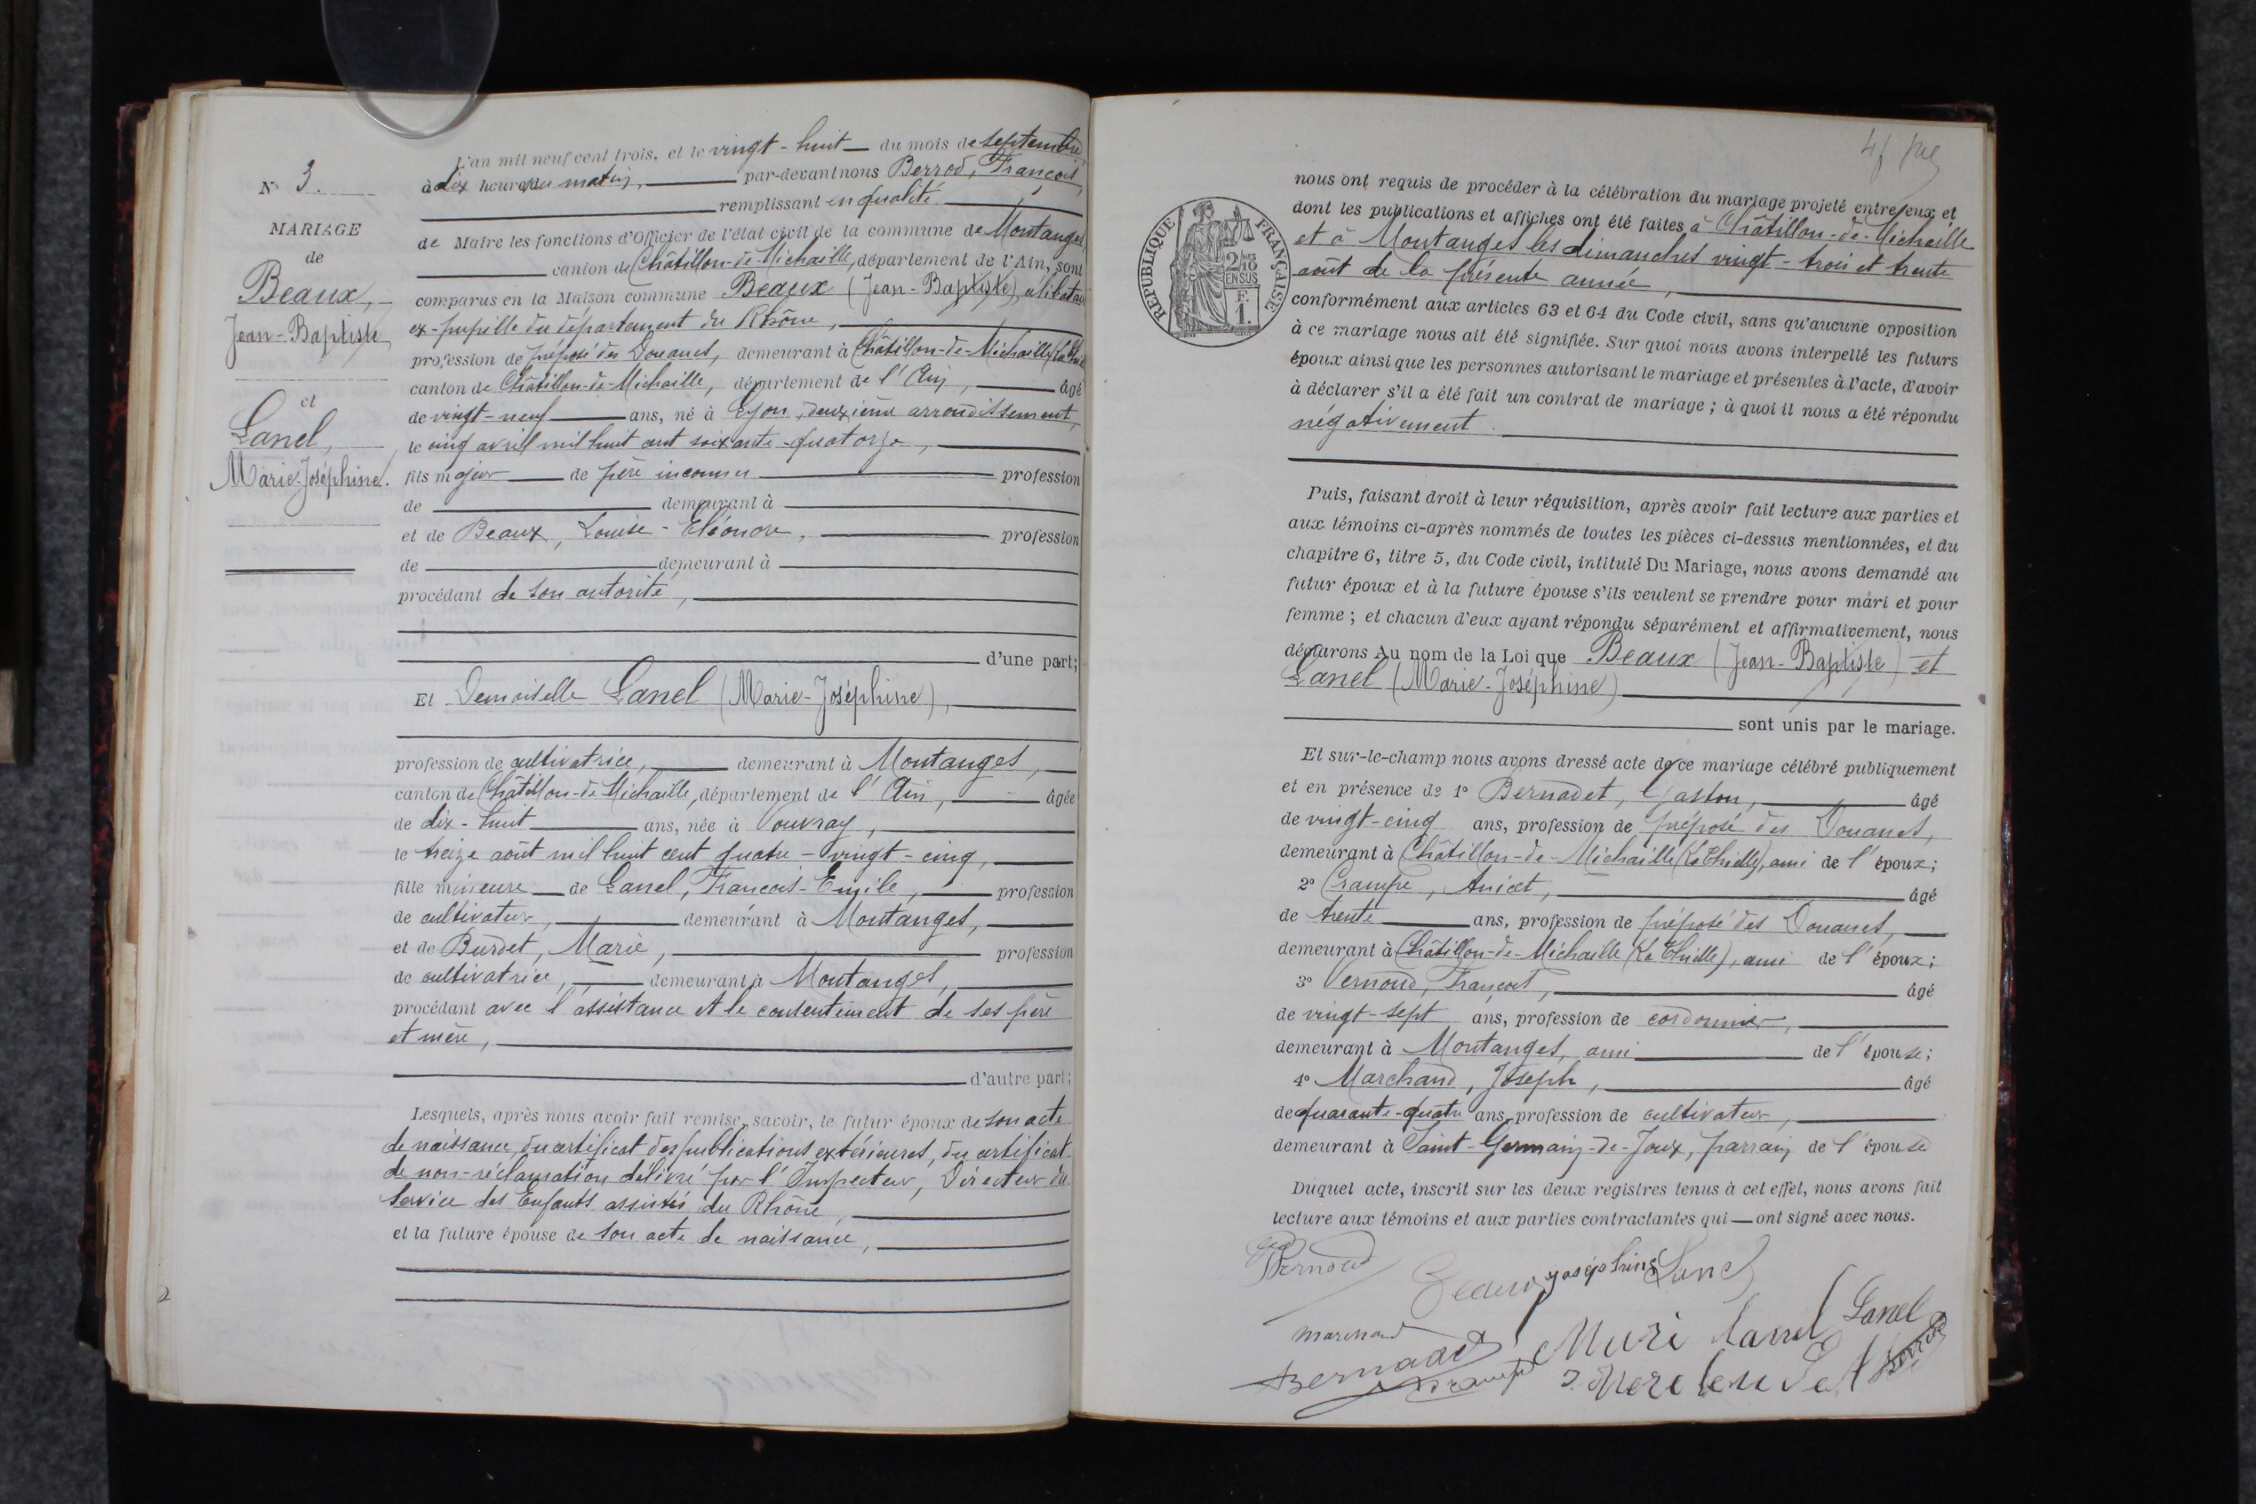 L'an mil neuf cent trois, et le vingt-huit du mois de septembre
à dix heures du matin, par-devant nous Berrod, François,
remplissant en qualité
de Maire les fonctions d'Officier de l'état civil de la commune de Montanges
canton de Châtillon-de-Michaille, département de l'Ain, sont
comparus en la Maison commune Beaux (Jean-Baptiste), célibataire
ex-pupille du département du Rhône,
profession de préposé des Douanes, demeurant à Châtillon-de-Michaille
canton de Châtillon-de-Michaille, département de l'Ain, âgé
de vingt-neuf ans, né à Lyon, deuxième arrondissement,
le cinq avril mil huit cent soixante-quatorze,
fils majeur de père inconnu profession
de demeurant à
et de Beaux, Louise-Eléonore, profession
de demeurant à
procédant de son autorité,
d'une part;
Et Demoiselle Lanel (Marie-Joséphine),
profession de cultivatrice, demeurant à Montanges,
canton de Châtillon-de-Michaille, département de l'Ain, âgée
de dix-huit ans, née à Vouvray,
le treize août mil huit cent quatre-vingt-cinq,
fille mineure de Lanel, François-Emile, profession
de cultivateur, demeurant à Montanges,
et de Burdet, Marie, profession
de cultivatrice, demeurant à Montanges,
procédant avec l'assistance et le consentement de ses père
et mère,
d'autre part;
Lesquels, après nous avoir fait remise, savoir, le futur époux de son acte
de naissance, du certificat des publications extérieures, du certificat
de non-réclamation délivré par l'Inspecteur, Directeur du
Service des Enfants assistés du Rhône,
et la future épouse de son acte de naissance,
N° 3.
MARIAGE
de
Beaux,
Jean-Baptiste
et
Lanel,
Marie-Joséphine.
2
RÉPUBLIQUE FRANÇAISE
2/10 EN SUS
F.
1.
nous ont requis de procéder à la célébration du mariage projeté entre eux et
dont les publications et affiches ont été faites à Châtillon-de-Michaille
et à Montanges les dimanches vingt-trois et trente
août de la présente année,
conformément aux articles 63 et 64 du Code civil, sans qu'aucune opposition
à ce mariage nous ait été signifiée. Sur quoi nous avons interpellé les futurs
époux ainsi que les personnes autorisant le mariage et présentes à l'acte, d'avoir
à déclarer s'il a été fait un contrat de mariage; à quoi il nous a été répondu
négativement.
Puis, faisant droit à leur réquisition, après avoir fait lecture aux parties et
aux témoins ci-après nommés de toutes les pièces ci-dessus mentionnées, et du
chapitre 6, titre 5, du Code civil, intitulé Du Mariage, nous avons demandé au
futur époux et à la future épouse s'ils veulent se prendre pour mari et pour
femme; et chacun d'eux ayant répondu séparément et affirmativement, nous
déclarons Au nom de la Loi que Beaux (Jean-Baptiste) et
Lanel (Marie-Joséphine)
sont unis par le mariage.
Et sur-le-champ nous avons dressé acte de ce mariage célébré publiquement
et en présence de 1° Bernadet, Gaston, âgé
de vingt-cinq ans, profession de préposé des Douanes,
demeurant à Châtillon-de-Michaille, ami de l'époux;
2° Crampe, Anicet, âgé
de trente ans, profession de préposé des Douanes,
demeurant à Châtillon-de-Michaille, ami de l'époux;
3° Vernoud, François, âgé
de vingt-sept ans, profession de cordonnier,
demeurant à Montanges, ami de l'épouse;
4° Marchand, Joseph, âgé
de quarante-quatre ans, profession de cultivateur,
demeurant à Saint-Germain-de-Joux, parrain de l'épouse
Duquel acte, inscrit sur les deux registres tenus à cet effet, nous avons fait
lecture aux témoins et aux parties contractantes qui ont signé avec nous.
Vernoud
Beaux Joséphine Lanel
Marchand
Lanel
Bernadet
Crampe
Berrod